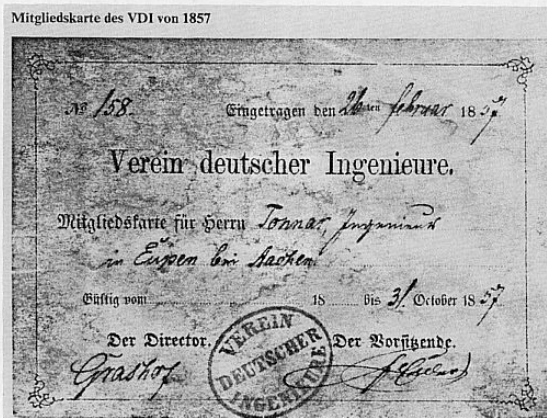 Mitgliedskarte des VDI von 1857
No 158. Eingetragen den 26ten Februar 1857
Verein deutscher Ingenieure.
Mitgliedskarte für Herrn Tonnar, Ingenieur
in Eupen bei Aachen.
Gültig vom 18 bis 31 October 1857.
Der Director. Der Vorsitzende.
Grashof
VEREIN
DEUTSCHER
INGENIEURE